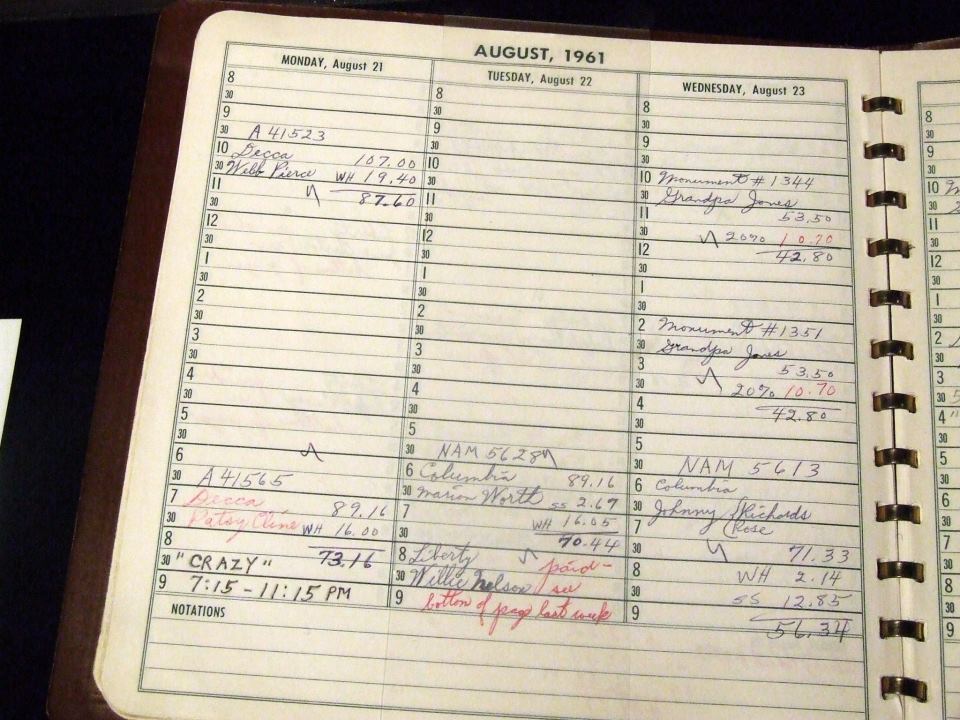 AUGUST, 1961
MONDAY, August 21
8
30
9
30 A 41523
10 Decca 107.00
30 Webb Pierce WH 19.40
11 87.60
30
12
30
1
30
2
30
3
30
4
30
5
30
6
30 A 41565
7 Decca 89.16
30 Patsy Cline WH 16.00
8 73.16
30 "CRAZY"
9 7:15 - 11:15 PM
NOTATIONS
TUESDAY, August 22
8
30
9
30
10
30
11
30
12
30
1
30
2
30
3
30
4
30
5
30 NAM 56284
6 Columbia 89.16
30 Marion Worth SS 2.67
7 WH 16.05
30 70.44
8 Liberty paid -
30 Willie Nelson see
9 bottom of page last week
WEDNESDAY, August 23
8
30
9
30
10 Monument # 1344
30 Grandpa Jones
11 53.50
30 20% 10.70
12 42.80
30
1
30
2 Monument # 1351
30 Grandpa Jones
3 53.50
30 20% 10.70
4 42.80
30
5
30 NAM 5613
6 Columbia
30 Johnny { Richards
7 Rose
30 71.33
8 WH 2.14
30 SS 12.85
9 56.34
8
30
9
30
10
30
11
30
12
30
1
30
2
30
3
30
4
30
5
30
6
30
7
30
8
30
9